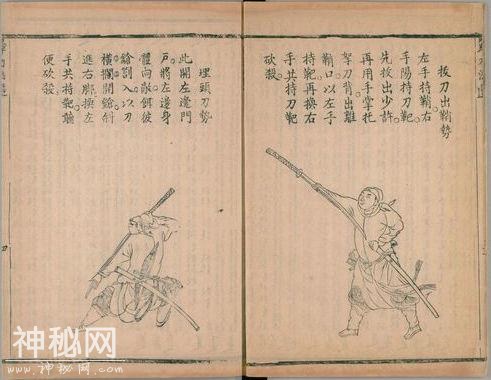 拔刀出鞘勢
左手持鞘右
手陽持刀靶
先拔出少許
再用手掌托
拏刀背出離
鞘口以左手
持靶再換右
手共持刀靶
砍殺
埋頭刀勢
此開左邊門
戶將左邊身
體向敵餌彼
鎗劄入以刀
橫攔開鎗斜
進右脚換左
手共持靶輪
便砍殺
神秘网
www.神秘网.com